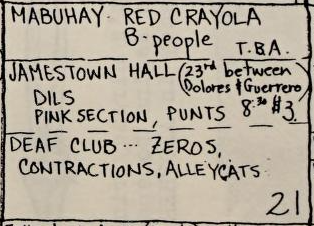 MABUHAY RED CRAYOLA
B-people T.B.A.
JAMESTOWN HALL (23rd between
Dolores & Guerrero)
DILS 8:30 $3.
PINK SECTION, PUNTS
DEAF CLUB ... ZEROS,
CONTRACTIONS, ALLEYCATS
21